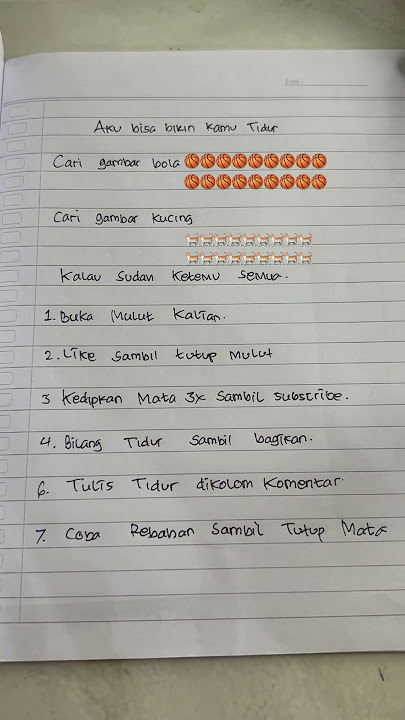 Aku bisa bikin kamu Tidur
Cari gambar bola 🏀🏀🏀🏀🏀🏀🏀🏀🏀
🏀🏀🏀🏀🏀🏀🏀🏀🏀
Cari gambar kucing
Kalau Sudah Ketemu Semua.
1. Buka Mulut Kalian.
2. Like Sambil tutup Mulut
3 Kedipkan Mata 3x Sambil Subscribe.
4. Bilang Tidur Sambil bagikan.
6. Tulis Tidur dikolom Komentar.
7. Coba Rebahan Sambil Tutup Mata